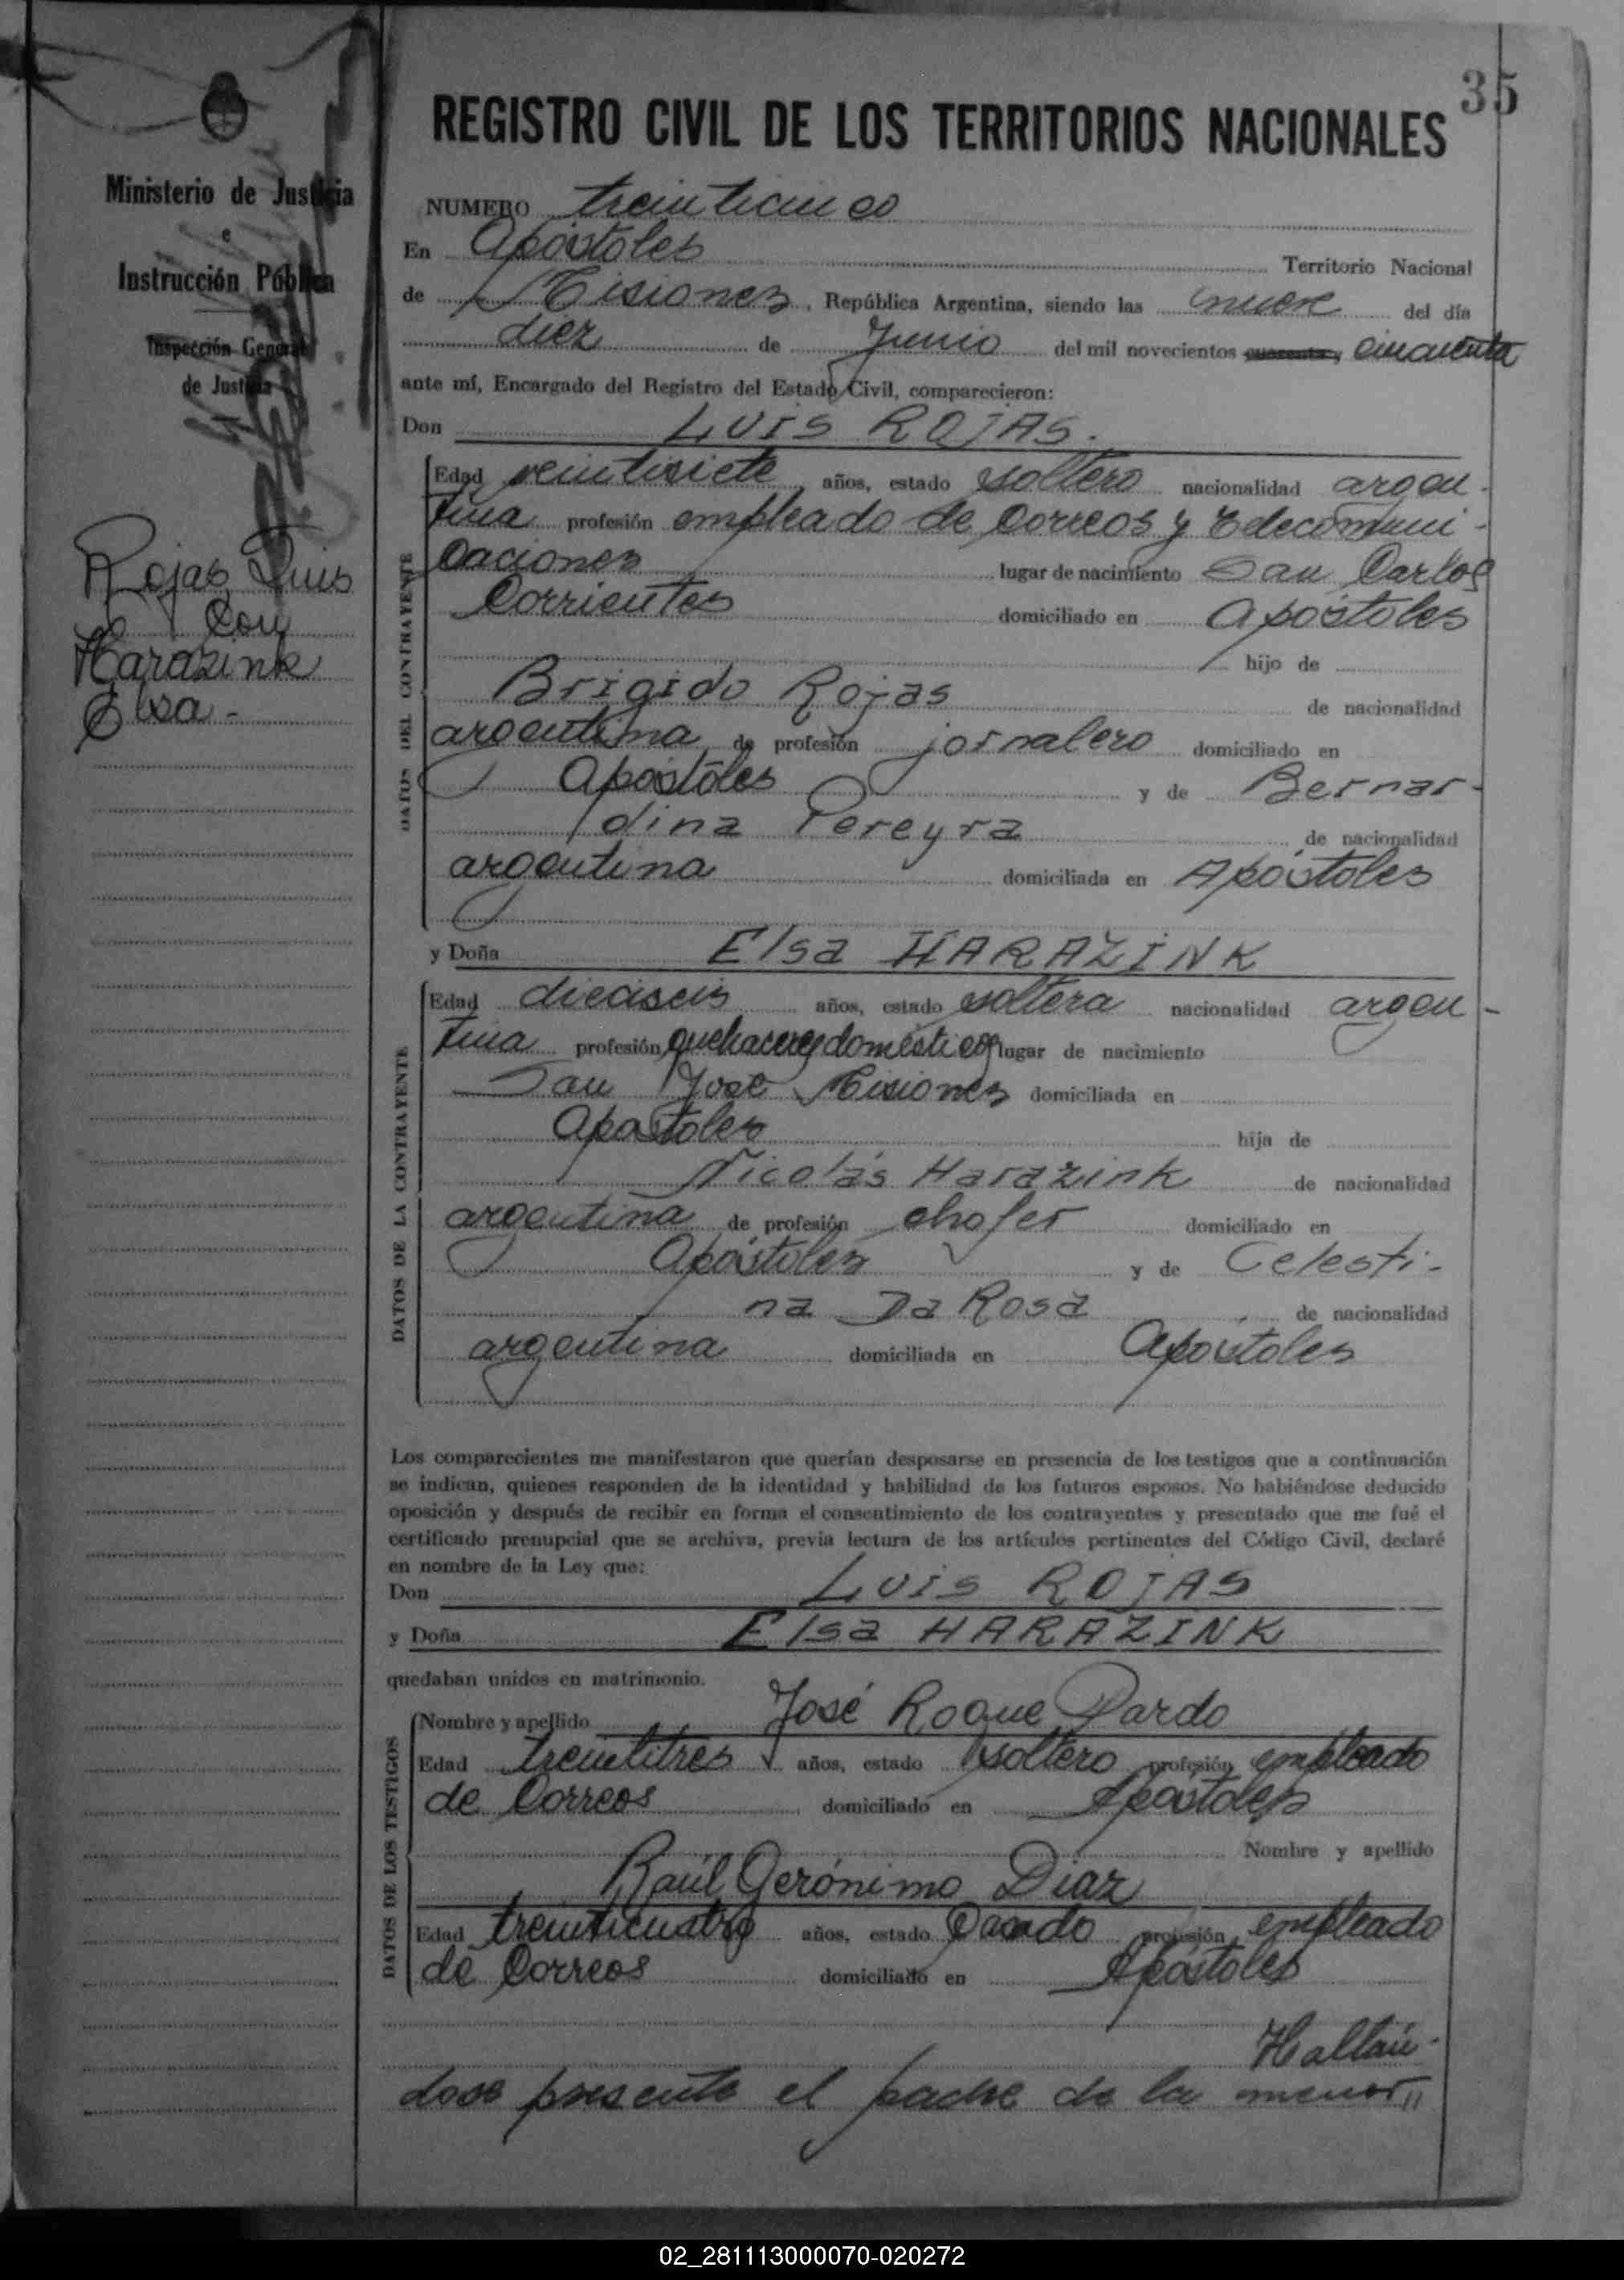 35
Ministerio de Justicia
e
Instrucción Pública
Inspección General
de Justicia
Rojas, Luis
con
Harazink
Elsa -
REGISTRO CIVIL DE LOS TERRITORIOS NACIONALES
NUMERO treinticinco
En Apóstoles Territorio Nacional
de Misiones, República Argentina, siendo las nueve del día
diez de Junio del mil novecientos cuarenta y cincuenta
ante mí, Encargado del Registro del Estado Civil, comparecieron:
Don LUIS ROJAS.
DATOS DEL CONTRAYENTE
Edad veintisiete años, estado soltero nacionalidad argen-
tina profesión empleado de Correos y Telecomuni-
caciones lugar de nacimiento San Carlos
Corrientes domiciliado en Apóstoles
hijo de
Brigido Rojas de nacionalidad
argentina de profesión jornalero domiciliado en
Apóstoles y de Bernar-
dina Pereyra de nacionalidad
argentina domiciliada en Apóstoles
y Doña Elsa HARAZINK
DATOS DE LA CONTRAYENTE
Edad dieciseis años, estado soltera nacionalidad argen-
tina profesión quehaceres domésticos lugar de nacimiento
San José Misiones domiciliada en
Apostoles hija de
Nicolás Harazink de nacionalidad
argentina de profesión chofer domiciliado en
Apóstoles y de Celesti-
na Da Rosa de nacionalidad
argentina domiciliada en Apóstoles
Los comparecientes me manifestaron que querían desposarse en presencia de los testigos que a continuación
se indican, quienes responden de la identidad y habilidad de los futuros esposos. No habiéndose deducido
oposición y después de recibir en forma el consentimiento de los contrayentes y presentado que me fué el
certificado prenupcial que se archiva, previa lectura de los artículos pertinentes del Código Civil, declaré
en nombre de la Ley que:
Don LUIS ROJAS
y Doña Elsa HARAZINK
quedaban unidos en matrimonio.
DATOS DE LOS TESTIGOS
Nombre y apellido José Roque Pardo
Edad treintitres años, estado soltero profesión empleado
de Correos domiciliado en Apóstoles
Nombre y apellido
Raúl Gerónimo Diaz
Edad treinticuatro años, estado casado profesión empleado
de Correos domiciliado en Apóstoles
Hallán-
dose presente el padre de la menor,,
02_281113000070-020272